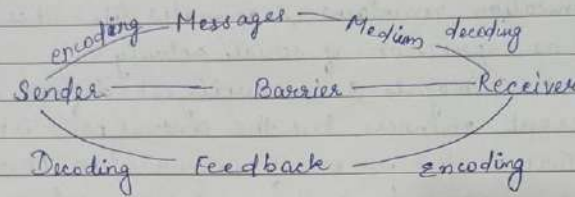 encoding Messages Medium decoding
Sender Barrier Receiver
Decoding Feedback Encoding